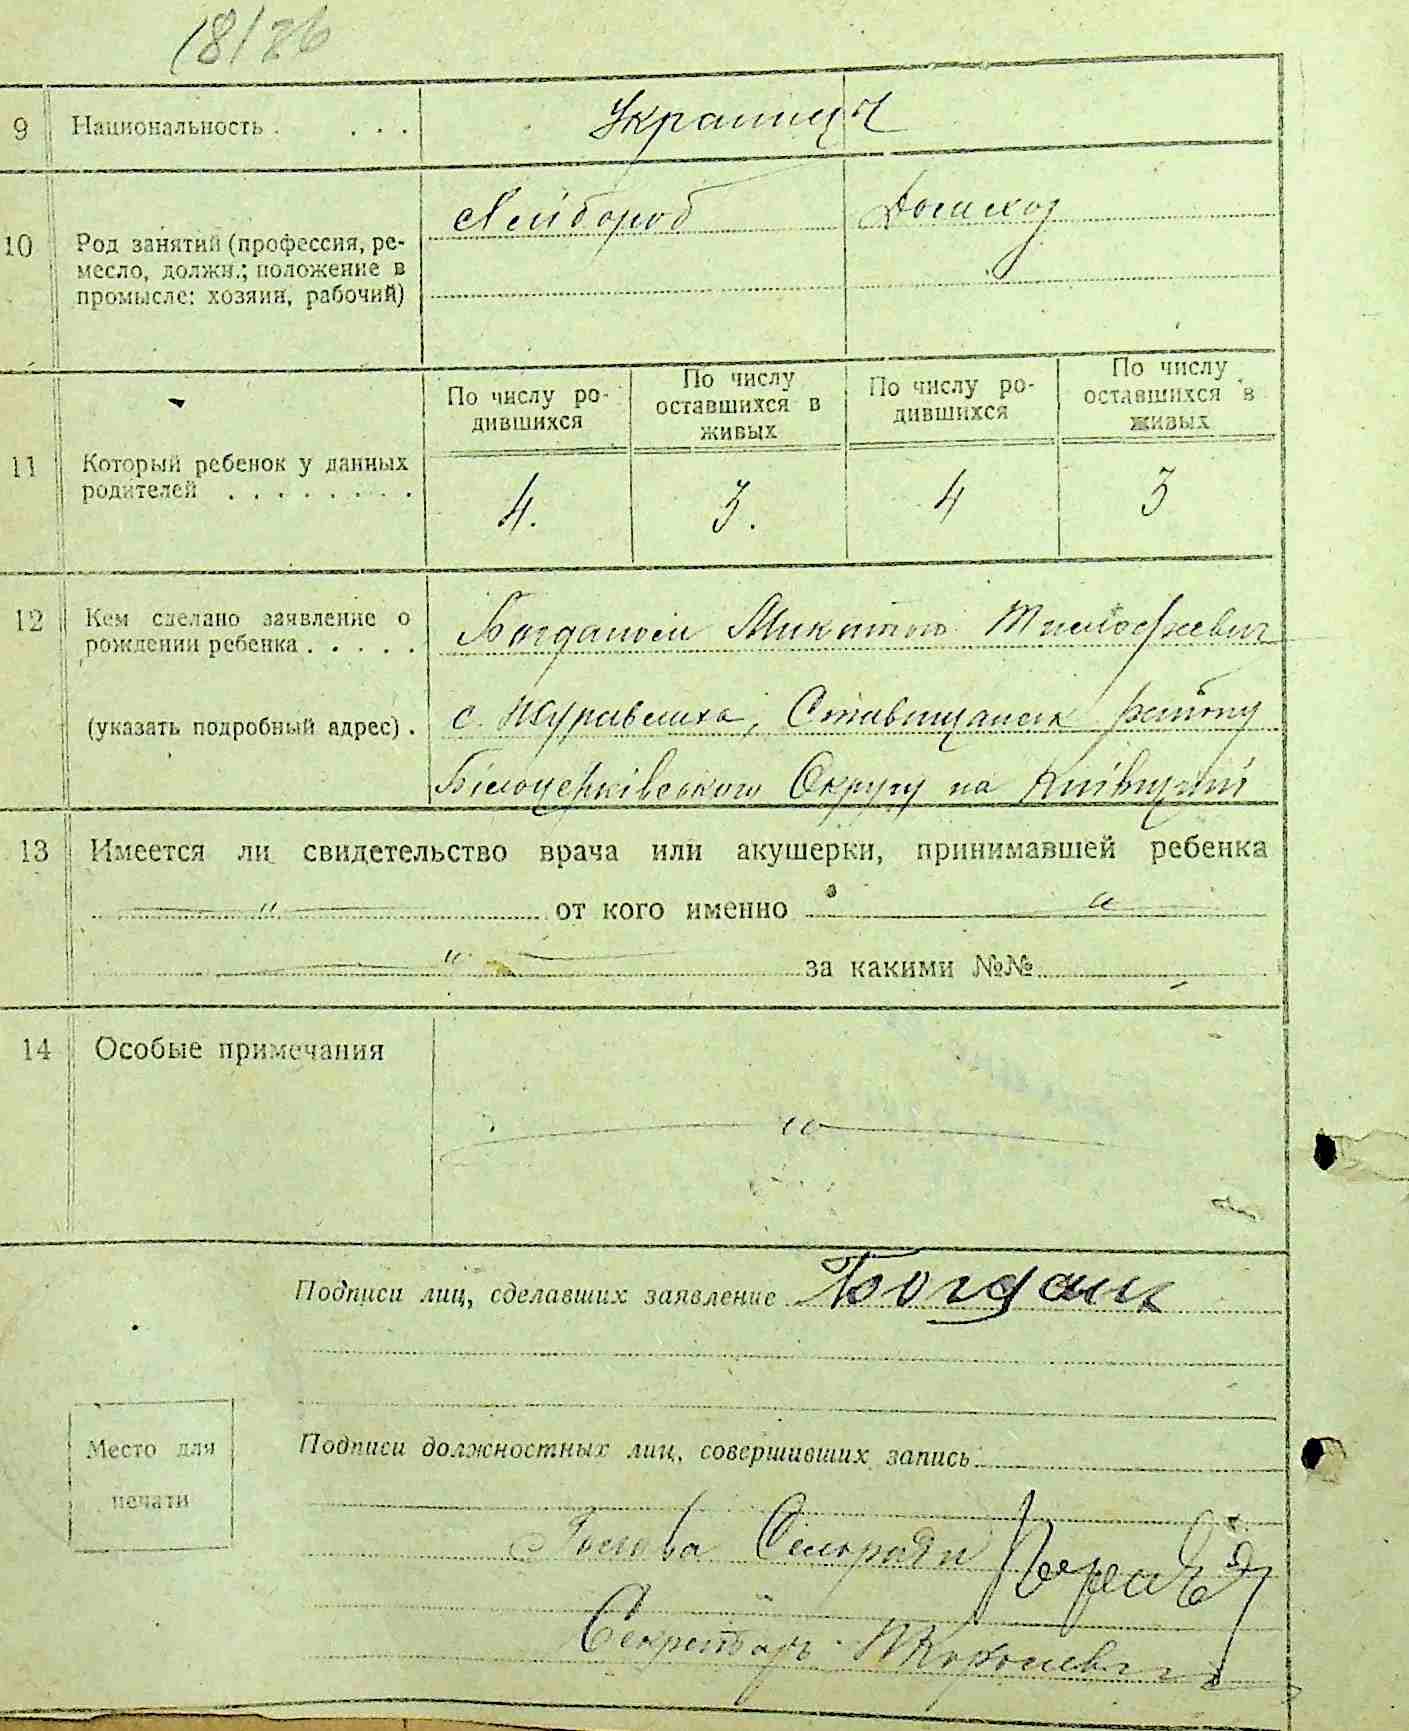 18/26
9 Национальность . . . . Украинцы
10 Род занятий (профессия, ре-
месло, должн.; положение в
промысле: хозяин, рабочий)
Хлибороб Домохоз
11 Который ребенок у данных
родителей . . . . . . . .
По числу ро-
дившихся
По числу
оставшихся в
живых
По числу ро-
дившихся
По числу
оставшихся в
живых
4. 3. 4 3
12 Кем сделано заявление о
рождении ребенка . . . . .
(указать подробный адрес) .
Богданом Микитою
с. Журавлиха, Ставищанськ району
Білоцерківського Округу на Київщині
13 Имеется ли свидетельство врача или акушерки, принимавшей ребенка
" от кого именно "
" за какими №№
14 Особые примечания
"
Подписи лиц, сделавших заявление Богдан
Место для
печати
Подписи должностных лиц, совершивших запись
Голова Сельради
Секретарь